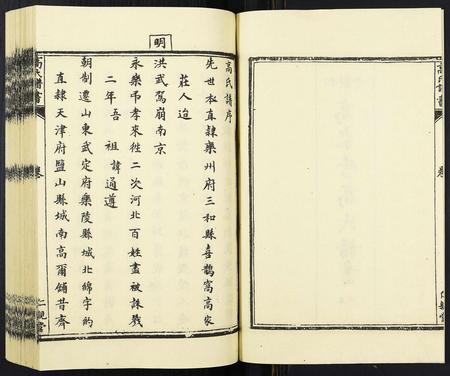 明
高氏譜序
先世本直隸欒州府三和縣喜鵲窩高家
莊人迨
洪武駕崩南京
永樂弔孝來徃二次河北百姓盡被誅戮
二年吾 祖諱通遵
朝制遷山東武定府樂陵縣城北綿字約
直隸天津府鹽山縣城南高爾鋪昔齊
高氏譜書
卷
仁親堂
高氏譜書
卷